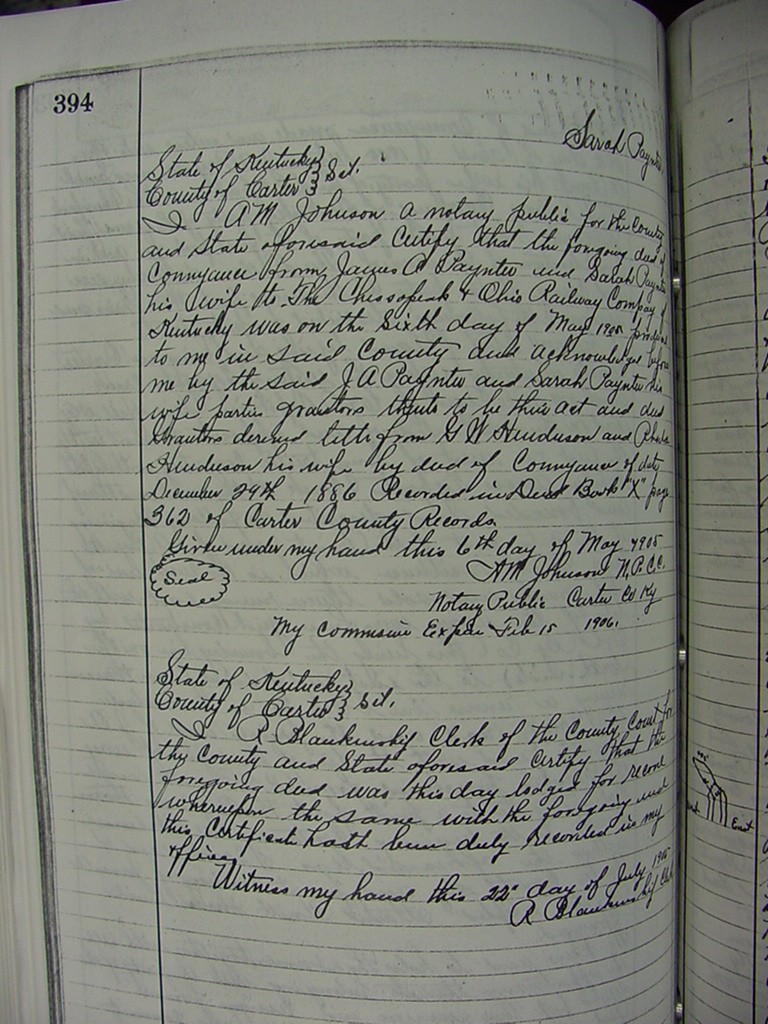 394
Sarah Paynter
State of Kentucky } Sct.
County of Carter }
I A M Johnson a notary public for the County
and State aforesaid Certify that the foregoing deed of
Conveyance from James A Paynter and Sarah Paynter
his wife to The Chesapeak & Ohio Railway Company of
Kentucky was on the Sixth day of May 1905 produced
to me in said County and acknowledged before
me by the said J A Paynter and Sarah Paynter his
wife parties grantors thereto to be their act and deed
Grantors derived title from G W Henderson and
Henderson his wife by deed of Conveyance of date
December 29th 1886 Recorded in Deed Book "X" page
362 of Carter County Records.
Given under my hand this 6th day of May 1905
Seal
A M Johnson N.P.C.C.
Notary Public Carter Co Ky
My commission Expires Feb 15 1906.
State of Kentucky } Sct.
County of Carter }
I R Blankenship Clerk of the County Court for
the County and State aforesaid Certify that the
foregoing deed was this day lodged for record
whereupon the same with the foregoing and
this Certificate hath been duly recorded in my
office,
Witness my hand this 22" day of July 1905
R Blankenship Clk
East